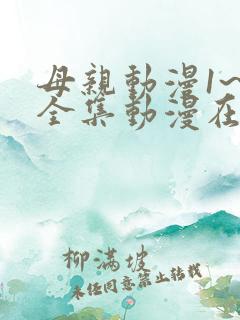 母親動漫1~
全集動漫在
柳滿坡
未经同意禁止转载